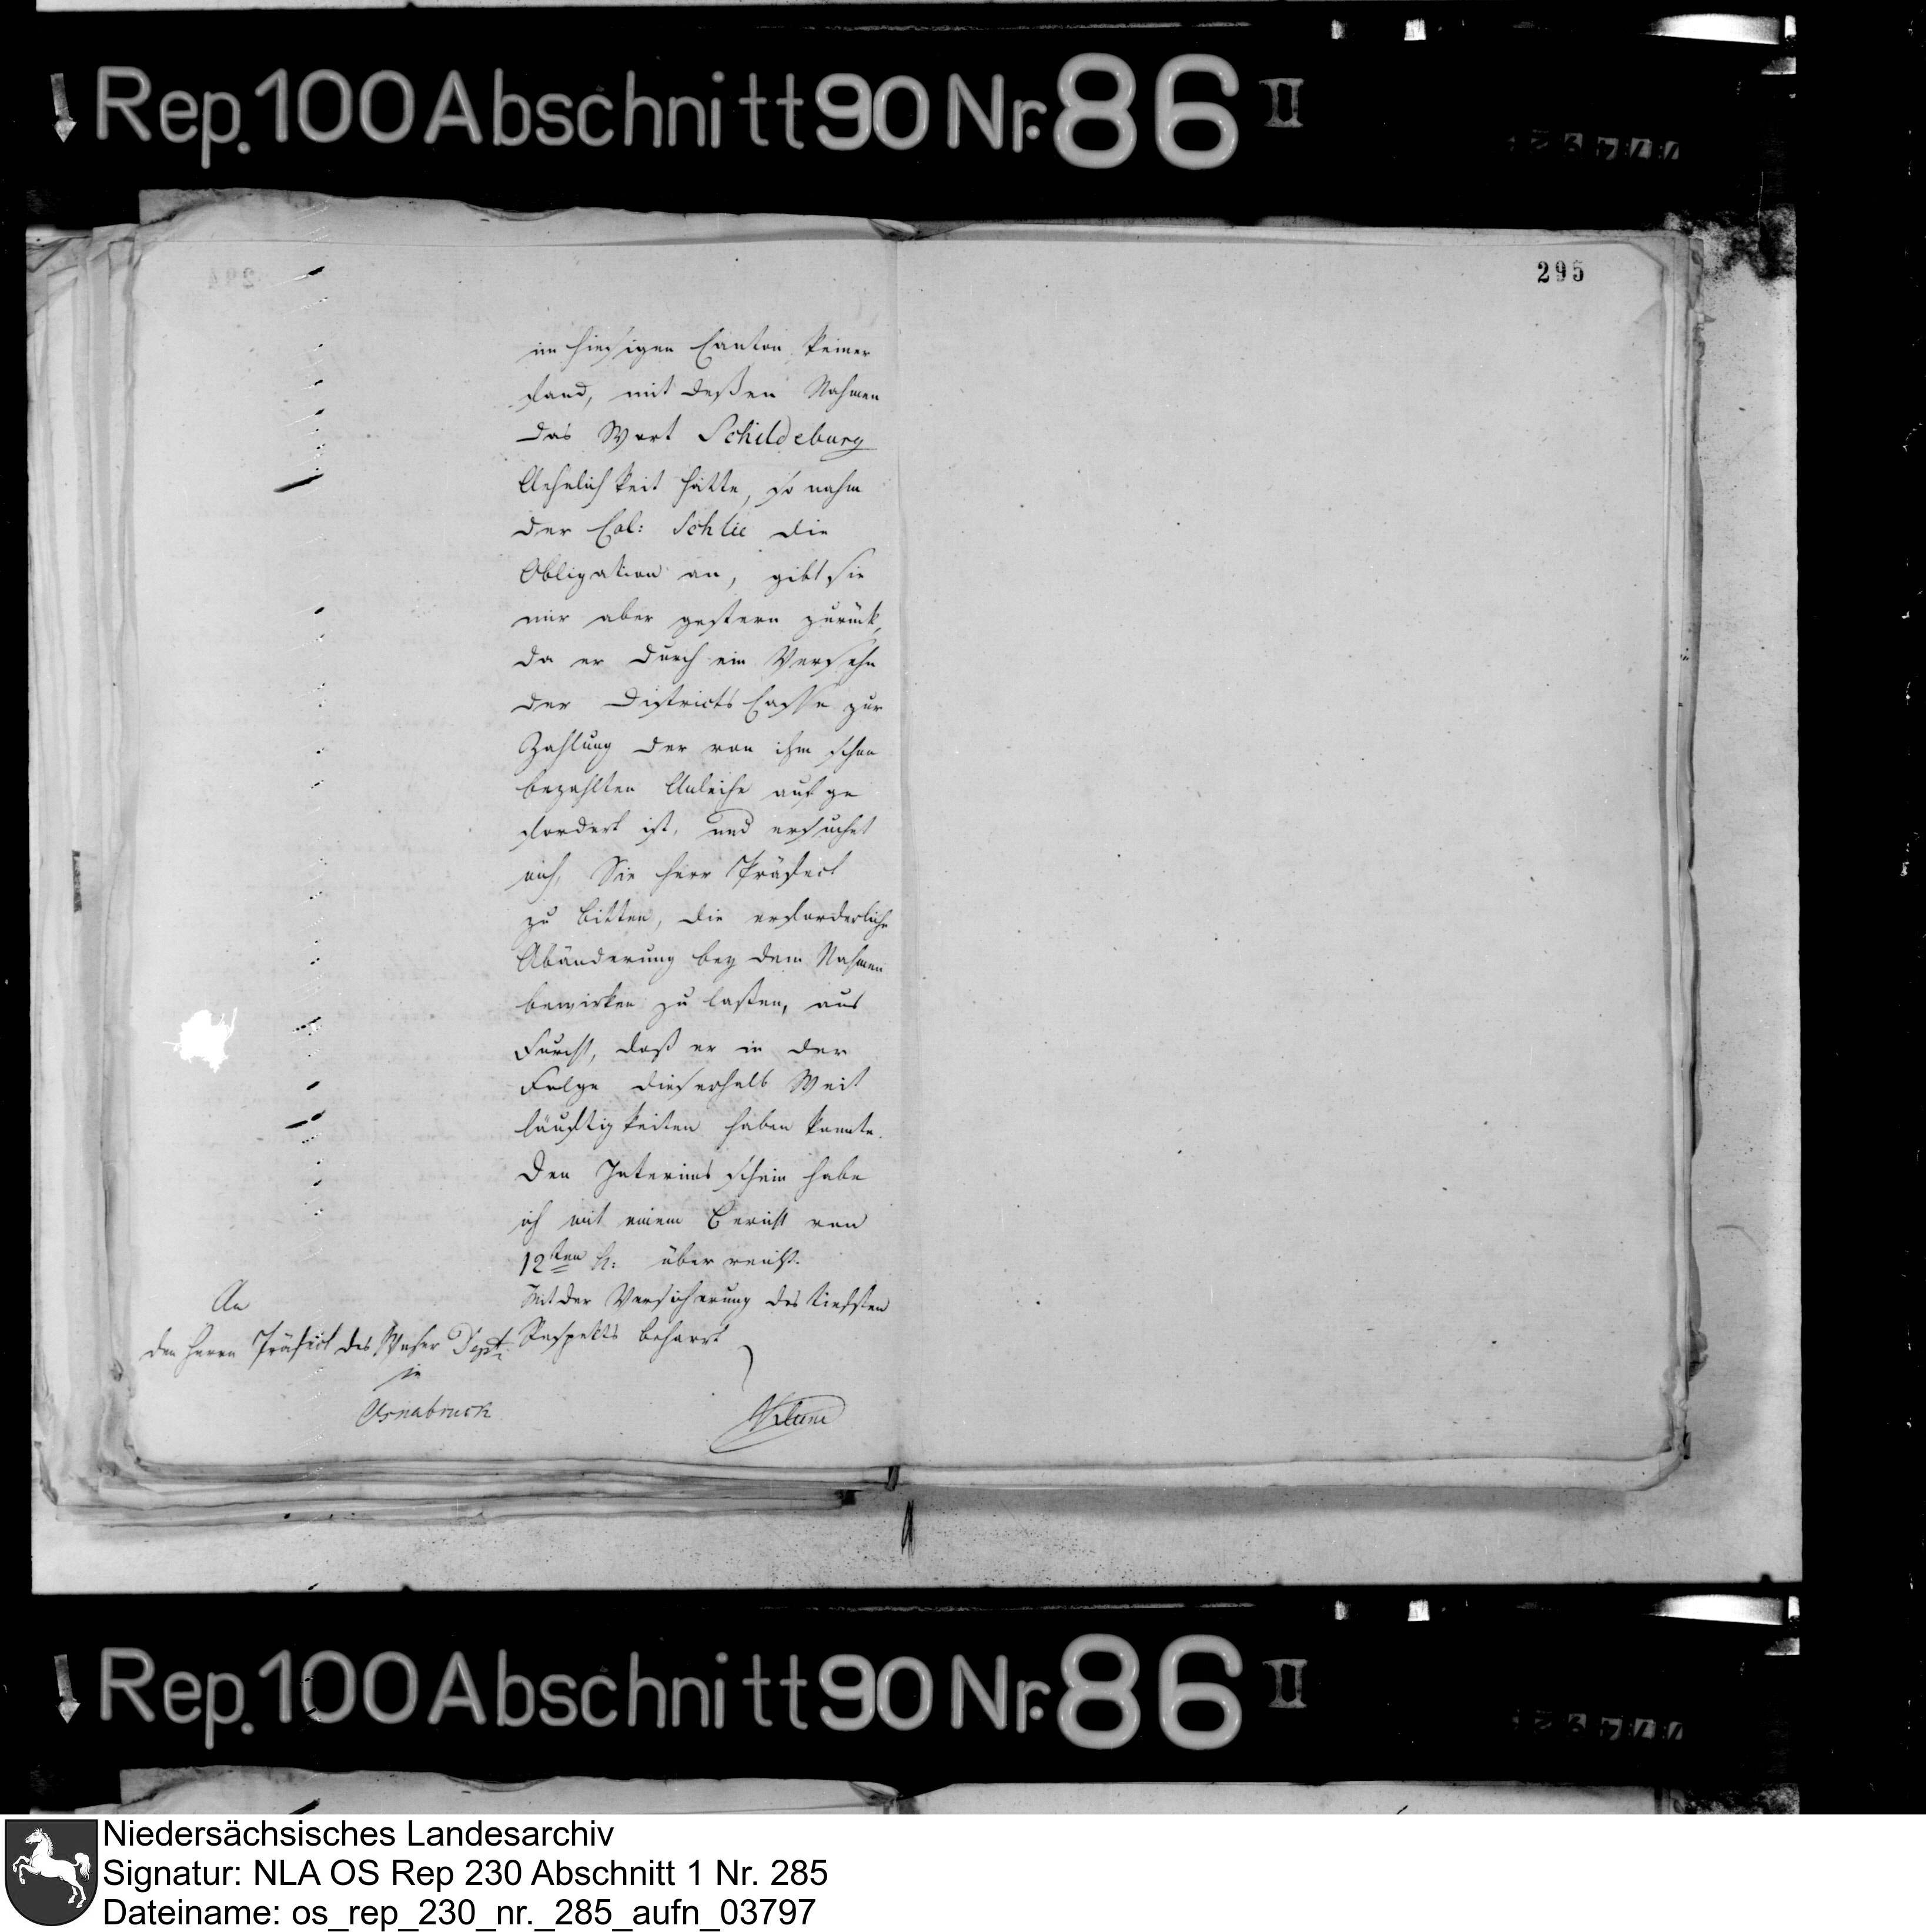 Rep. 100 Abschnitt 90 Nr. 86 II
295
im hiesigen Canton keiner
fand, mit deßen Nahmen
das Wort Schildeburg
Aehnlichkeit hätte, so nahm
der Col: Schlie die
Obligation an, gibt sie
mir aber gestern zurück,
da er durch ein Versehn
der Districts Casse zur
Zahlung der von ihm schon
bezahlten Anleihe aufge
fordert ist, und ersuchet
mich, Sie Herr Präfect
zu bitten, die erforderliche
Abänderung bey dem Nahmen
bewirken zu laßen, aus
Furcht, daß er in der
Folge dieserhalb Weit
läuftigkeiten haben konnte.
Den Interims schein habe
ich mit einem Bericht von
12ten überreicht.
Mit der Versicherung des tiefsten
Respekts beharrt
An
den Herrn Präfect des Weser Dept:
in
Osnabruck
Rep. 100 Abschnitt 90 Nr. 86 II
Niedersächsisches Landesarchiv
Signatur: NLA OS Rep 230 Abschnitt 1 Nr. 285
Dateiname: os_rep_230_nr._285_aufn_03797